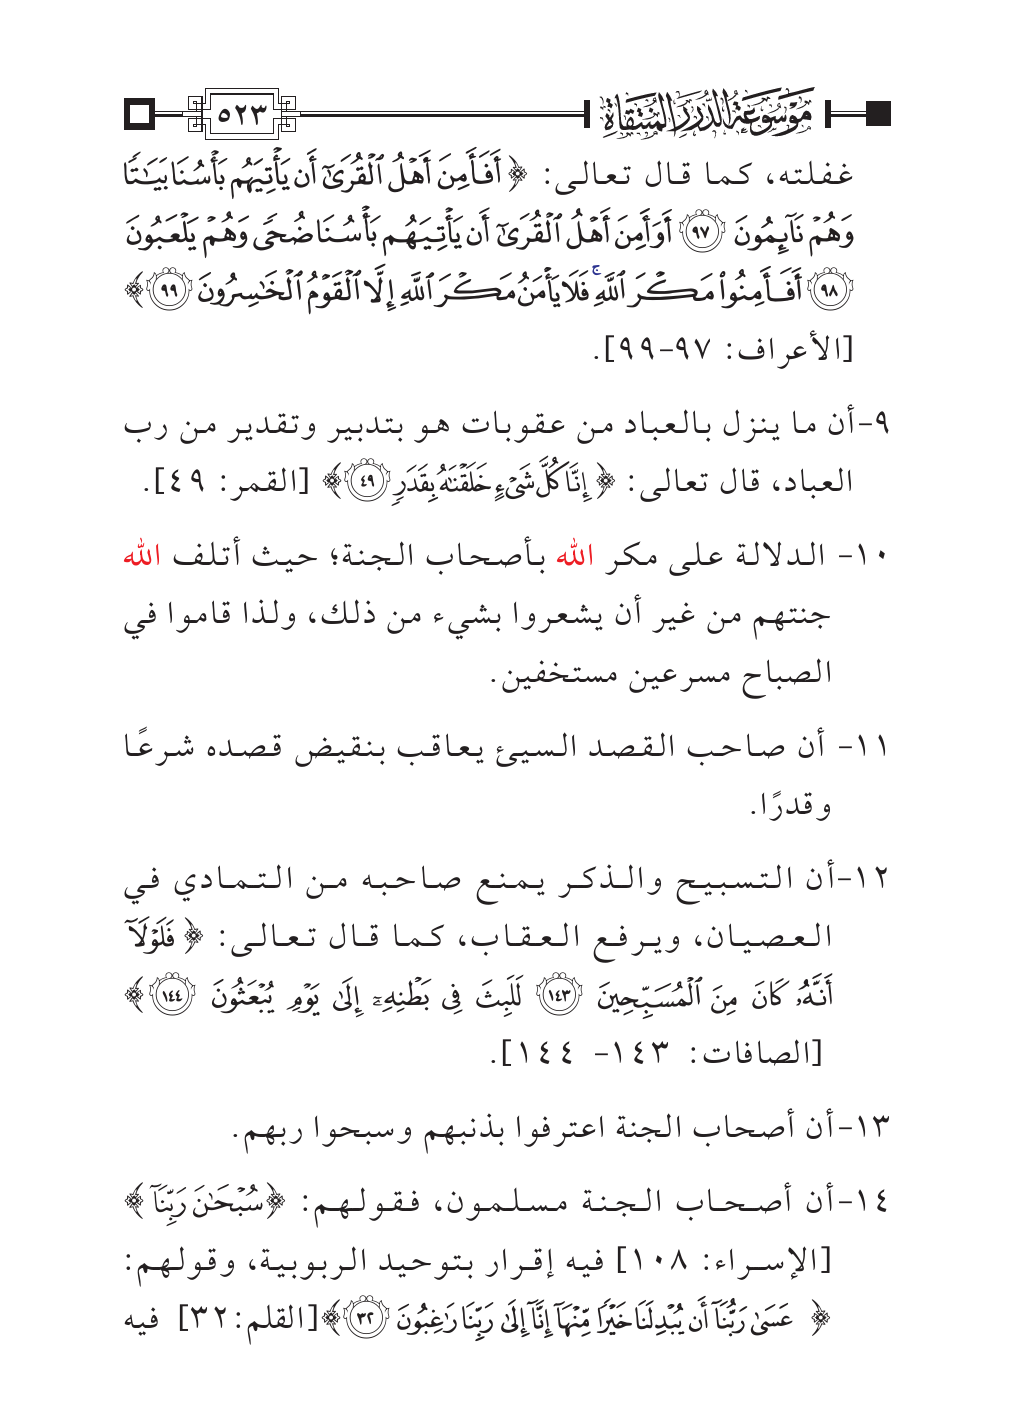 موسوعة الدرر المنتقاة ٥٢٣
غفلته، كما قال تعالى: ﴿أَفَأَمِنَ أَهْلُ ٱلْقُرَىٰٓ أَن يَأْتِيَهُم بَأْسُنَا بَيَـٰتًا
وَهُمْ نَآئِمُونَ ٩٧ أَوَأَمِنَ أَهْلُ ٱلْقُرَىٰٓ أَن يَأْتِيَهُم بَأْسُنَا ضُحًى وَهُمْ يَلْعَبُونَ
٩٨ أَفَأَمِنُوا۟ مَكْرَ ٱللَّهِ ۚ فَلَا يَأْمَنُ مَكْرَ ٱللَّهِ إِلَّا ٱلْقَوْمُ ٱلْخَـٰسِرُونَ ٩٩﴾
[الأعراف: ٩٧-٩٩].
٩-أن ما ينزل بالعباد من عقوبات هو بتدبير وتقدير من رب
العباد، قال تعالى: ﴿إِنَّا كُلَّ شَىْءٍ خَلَقْنَـٰهُ بِقَدَرٍ ٤٩﴾ [القمر: ٤٩].
١٠- الدلالة على مكر الله بأصحاب الجنة؛ حيث أتلف الله
جنتهم من غير أن يشعروا بشيء من ذلك، ولذا قاموا في
الصباح مسرعين مستخفين.
١١- أن صاحب القصد السيئ يعاقب بنقيض قصده شرعًا
وقدرًا.
١٢-أن التسبيح والذكر يمنع صاحبه من التمادي في
العصيان، ويرفع العقاب، كما قال تعالى: ﴿فَلَوْلَآ
أَنَّهُۥ كَانَ مِنَ ٱلْمُسَبِّحِينَ ١٤٣ لَلَبِثَ فِى بَطْنِهِۦٓ إِلَىٰ يَوْمِ يُبْعَثُونَ ١٤٤﴾
[الصافات: ١٤٣- ١٤٤].
١٣-أن أصحاب الجنة اعترفوا بذنبهم وسبحوا ربهم.
١٤-أن أصحاب الجنة مسلمون، فقولهم: ﴿سُبْحَـٰنَ رَبِّنَآ﴾
[الإسراء: ١٠٨] فيه إقرار بتوحيد الربوبية، وقولهم:
﴿ عَسَىٰ رَبُّنَآ أَن يُبْدِلَنَا خَيْرًا مِّنْهَآ إِنَّآ إِلَىٰ رَبِّنَا رَٰغِبُونَ ٣٢﴾ [القلم:٣٢] فيه